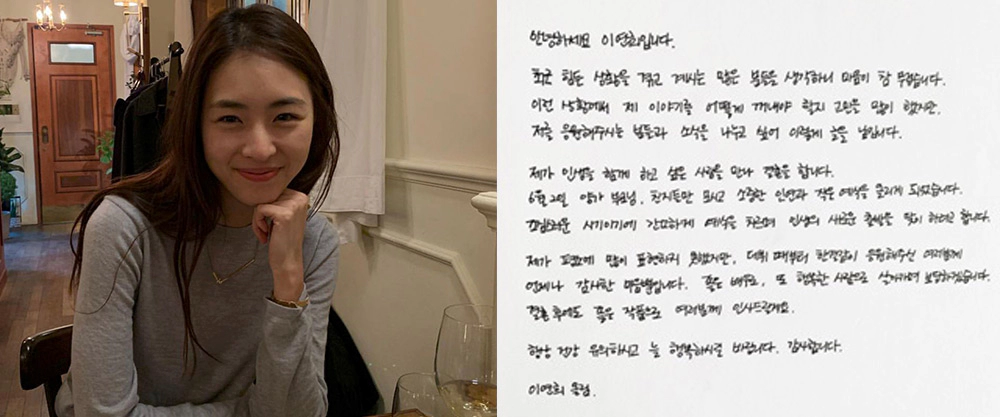 안녕하세요 이연희입니다.
최근 힘든 상황을 겪고 계시는 많은 분들을 생각하니 마음이 참 무겁습니다.
이런 상황에서 제 이야기를 어떻게 꺼내야 할지 고민을 많이 했지만,
저를 응원해주시는 분들과 소식을 나누고 싶어 이렇게 글을 남깁니다.
제가 인생을 함께 하고 싶은 사람을 만나 결혼을 합니다.
6월 2일, 양가 부모님, 친지들만 모시고 소중한 인연과 작은 예식을 올리게 되었습니다.
조심스러운 시기이기에 간소하게 예식을 치르며 인생의 새로운 출발을 맞이 하려고 합니다.
제가 평소에 많이 표현하지 못했지만, 데뷔 때부터 한결같이 응원해주신 여러분께
언제나 감사한 마음뿐입니다. 좋은 배우로, 또 행복한 사람으로 살아가며 보답하겠습니다.
결혼 후에도 좋은 작품으로 여러분께 인사드릴게요.
항상 건강 유의하시고 늘 행복하시길 바랍니다. 감사합니다.
이연희 올림.